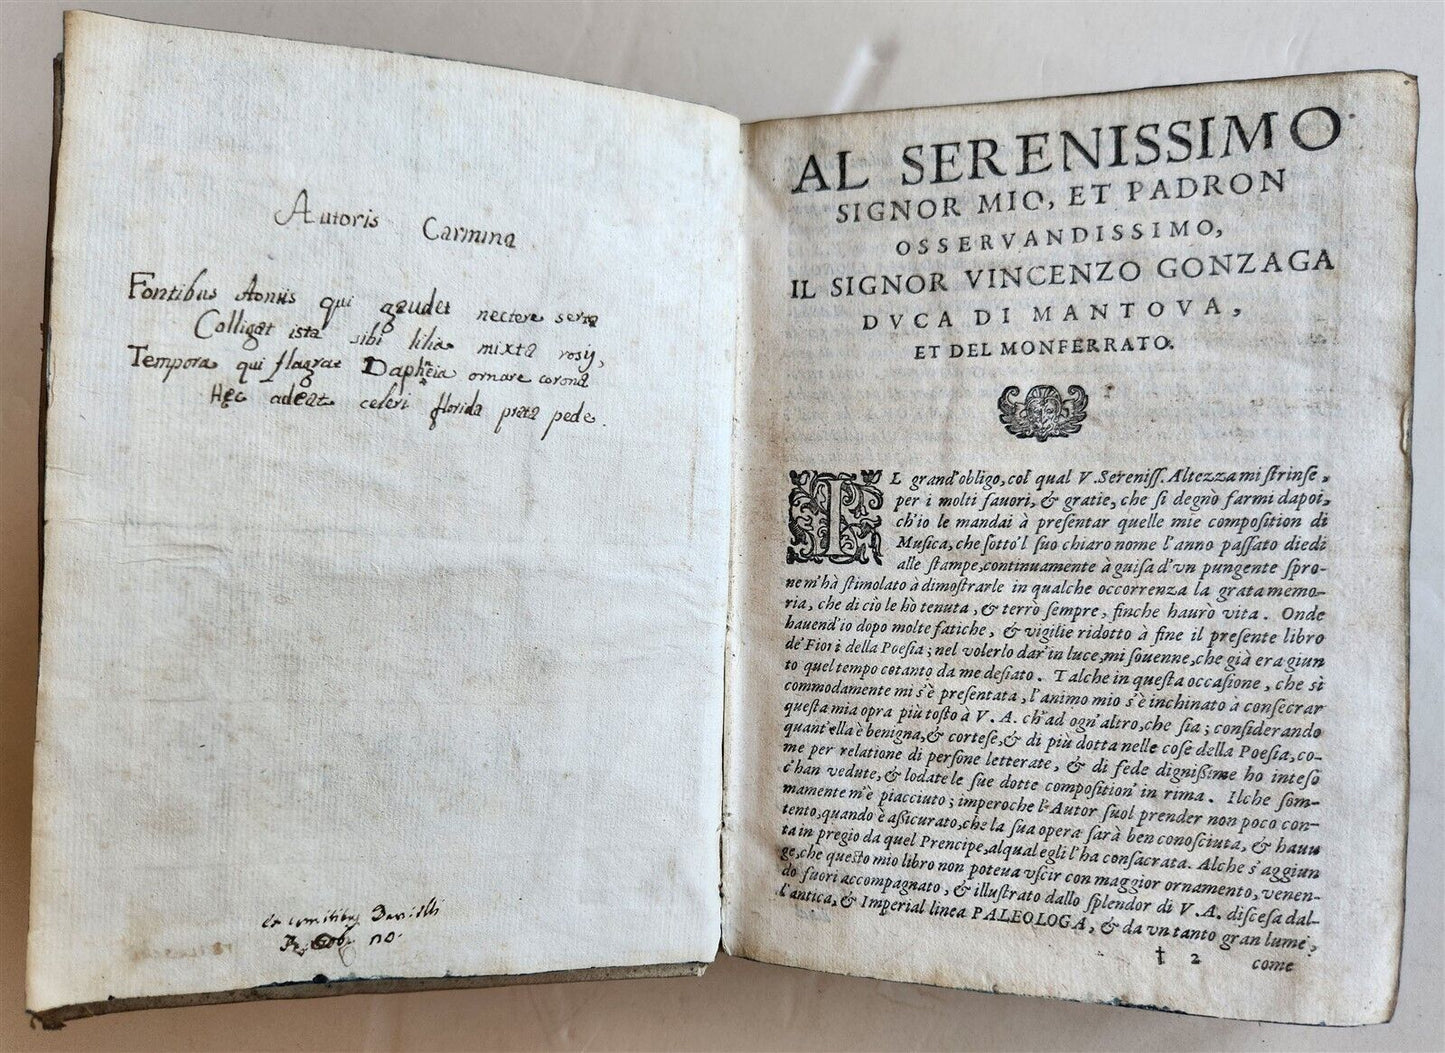 Autoris Carmina
Fontibus Aoniis qui gaudet nectere serta
Colligat ista sibi lilia mixta rosis,
Tempora qui flagrat Dapheia ornare corona
Hęc adeat celeri florida prata pede.
AL SERENISSIMO
SIGNOR MIO, ET PADRON
OSSERVANDISSIMO,
IL SIGNOR VINCENZO GONZAGA
DVCA DI MANTOVA,
ET DEL MONFERRATO.
IL grand'obligo, col qual V. Sereniſſ. Altezza mi ſtrinſe,
per i molti fauori, & gratie, che ſi degnò farmi dapoi,
ch'io le mandai à preſentar quelle mie compoſition di
Muſica, che ſotto'l ſuo chiaro nome l'anno paſſato diedi
alle ſtampe, continuamente à guiſa d'vn pungente ſpro-
ne m'hà ſtimolato à dimoſtrarle in qualche occorrenza la grata memo-
ria, che di ciò le hò tenuta, & terrò ſempre, finche haurò vita. Onde
hauend'io dopo molte fatiche, & vigilie ridotto à fine il preſente libro
de' Fiori della Poeſia; nel volerlo dar'in luce, mi ſouenne, che già era giun
to quel tempo cotanto da me deſiato. Talche in queſta occaſione, che sì
commodamente mi s'è preſentata, l'animo mio s'è inchinato à conſecrar
queſta mia opra più toſto à V. A. ch'ad ogn'altro, che ſia; conſiderando
quant'ella è benigna, & corteſe, & di più dotta nelle coſe della Poeſia, co-
me per relatione di perſone letterate, & di fede digniſſime ho inteſo
c'han vedute, & lodate le ſue dotte compoſition' in rima. Ilche ſom-
mamente m'è piacciuto; imperoche l'Autor ſuol prender non poco con-
tento, quando è aſſicurato, che la ſua opera ſarà ben conoſciuta, & hauu
ta in pregio da quel Prencipe, al qual egli l'ha conſacrata. Alche s'aggiun
ge, che queſto mio libro non poteua vſcir con maggior ornamento, venen-
do fuori accompagnato, & illuſtrato dallo ſplendor di V. A. diſceſa dal-
l'antica, & Imperial linea PALEOLOGA, & da vn tanto gran lume,
† 2 come